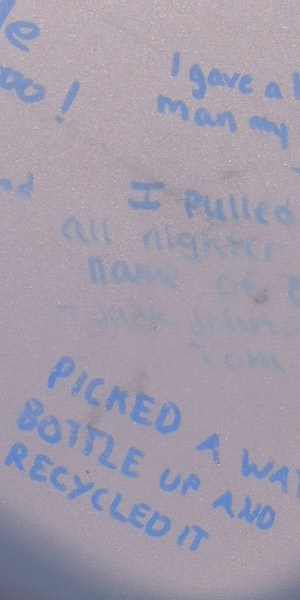 le
ooo!
I gave a
man my
I pulled
all nighter
name of
PICKED A WAT
BOTTLE UP AND
RECYCLED IT